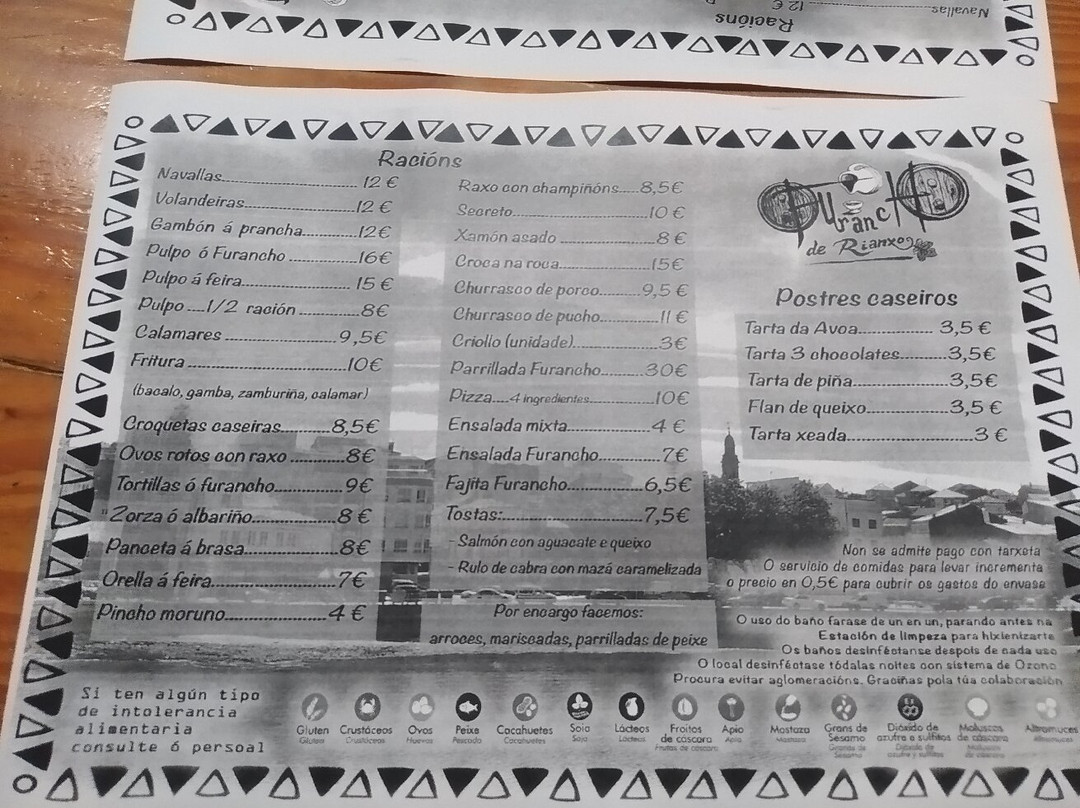 Navallas 12 €
Racións
Racións
Navallas 12 €
Volandeiras 12 €
Gambón á prancha 12€
Pulpo ó Furancho 16€
Pulpo á feira 15 €
Pulpo ....1/2 ración 8€
Calamares 9,5€
Fritura 10€
(bacalo, gamba, zamburiña, calamar)
Croquetas caseiras 8,5€
Ovos rotos con raxo 8€
Tortillas ó furancho 9€
Zorza ó albariño 8 €
Panceta á brasa 8€
Orella á feira 7€
Pincho moruno 4 €
Raxo con champiñóns 8,5€
Secreto 10 €
Xamón asado 8 €
Croca na roca 15€
Churrasco de porco 9,5 €
Churrasco de pucho 11 €
Criollo (unidade) 3€
Parrillada Furancho 30€
Pizza....4 ingredientes 10€
Ensalada mixta 4 €
Ensalada Furancho 7€
Fajita Furancho 6,5€
Tostas: 7,5€
- Salmón con aguacate e queixo
- Rulo de cabra con mazá caramelizada
Por encargo facemos:
arroces, mariscadas, parrilladas de peixe
FurancHO
de Rianxo
Postres caseiros
Tarta da Avoa 3,5 €
Tarta 3 chocolates 3,5€
Tarta de piña 3,5€
Flan de queixo 3,5 €
Tarta xeada 3 €
Non se admite pago con tarxeta
O servicio de comidas para levar incrementa
o precio en 0,5€ para cubrir os gastos do envase
O uso do baño farase de un en un, parando antes na
Estación de limpeza para hixienizarte
Os baños desinféctanse despois de cada uso
O local desinféctase tódalas noites con sistema de Ozono
Procura evitar aglomeracións. Graciñas pola túa colaboración
Si ten algún tipo
de intolerancia
alimentaria
consulte ó persoal
Gluten Crustáceos Ovos Peixe Cacahuetes Soia Lácteos Froitos de cáscara Apio Mostaza Grans de Sésamo Dióxido de azufre e sulfitos Moluscos de cáscara Altramuces
Gluten Crustáceos Huevos Pescado Cacahuetes Soja Lácteos Frutos de cáscara Apio Mostaza Granos de Sésamo Dióxido de azufre y sulfitos Moluscos de cáscara Altramuces